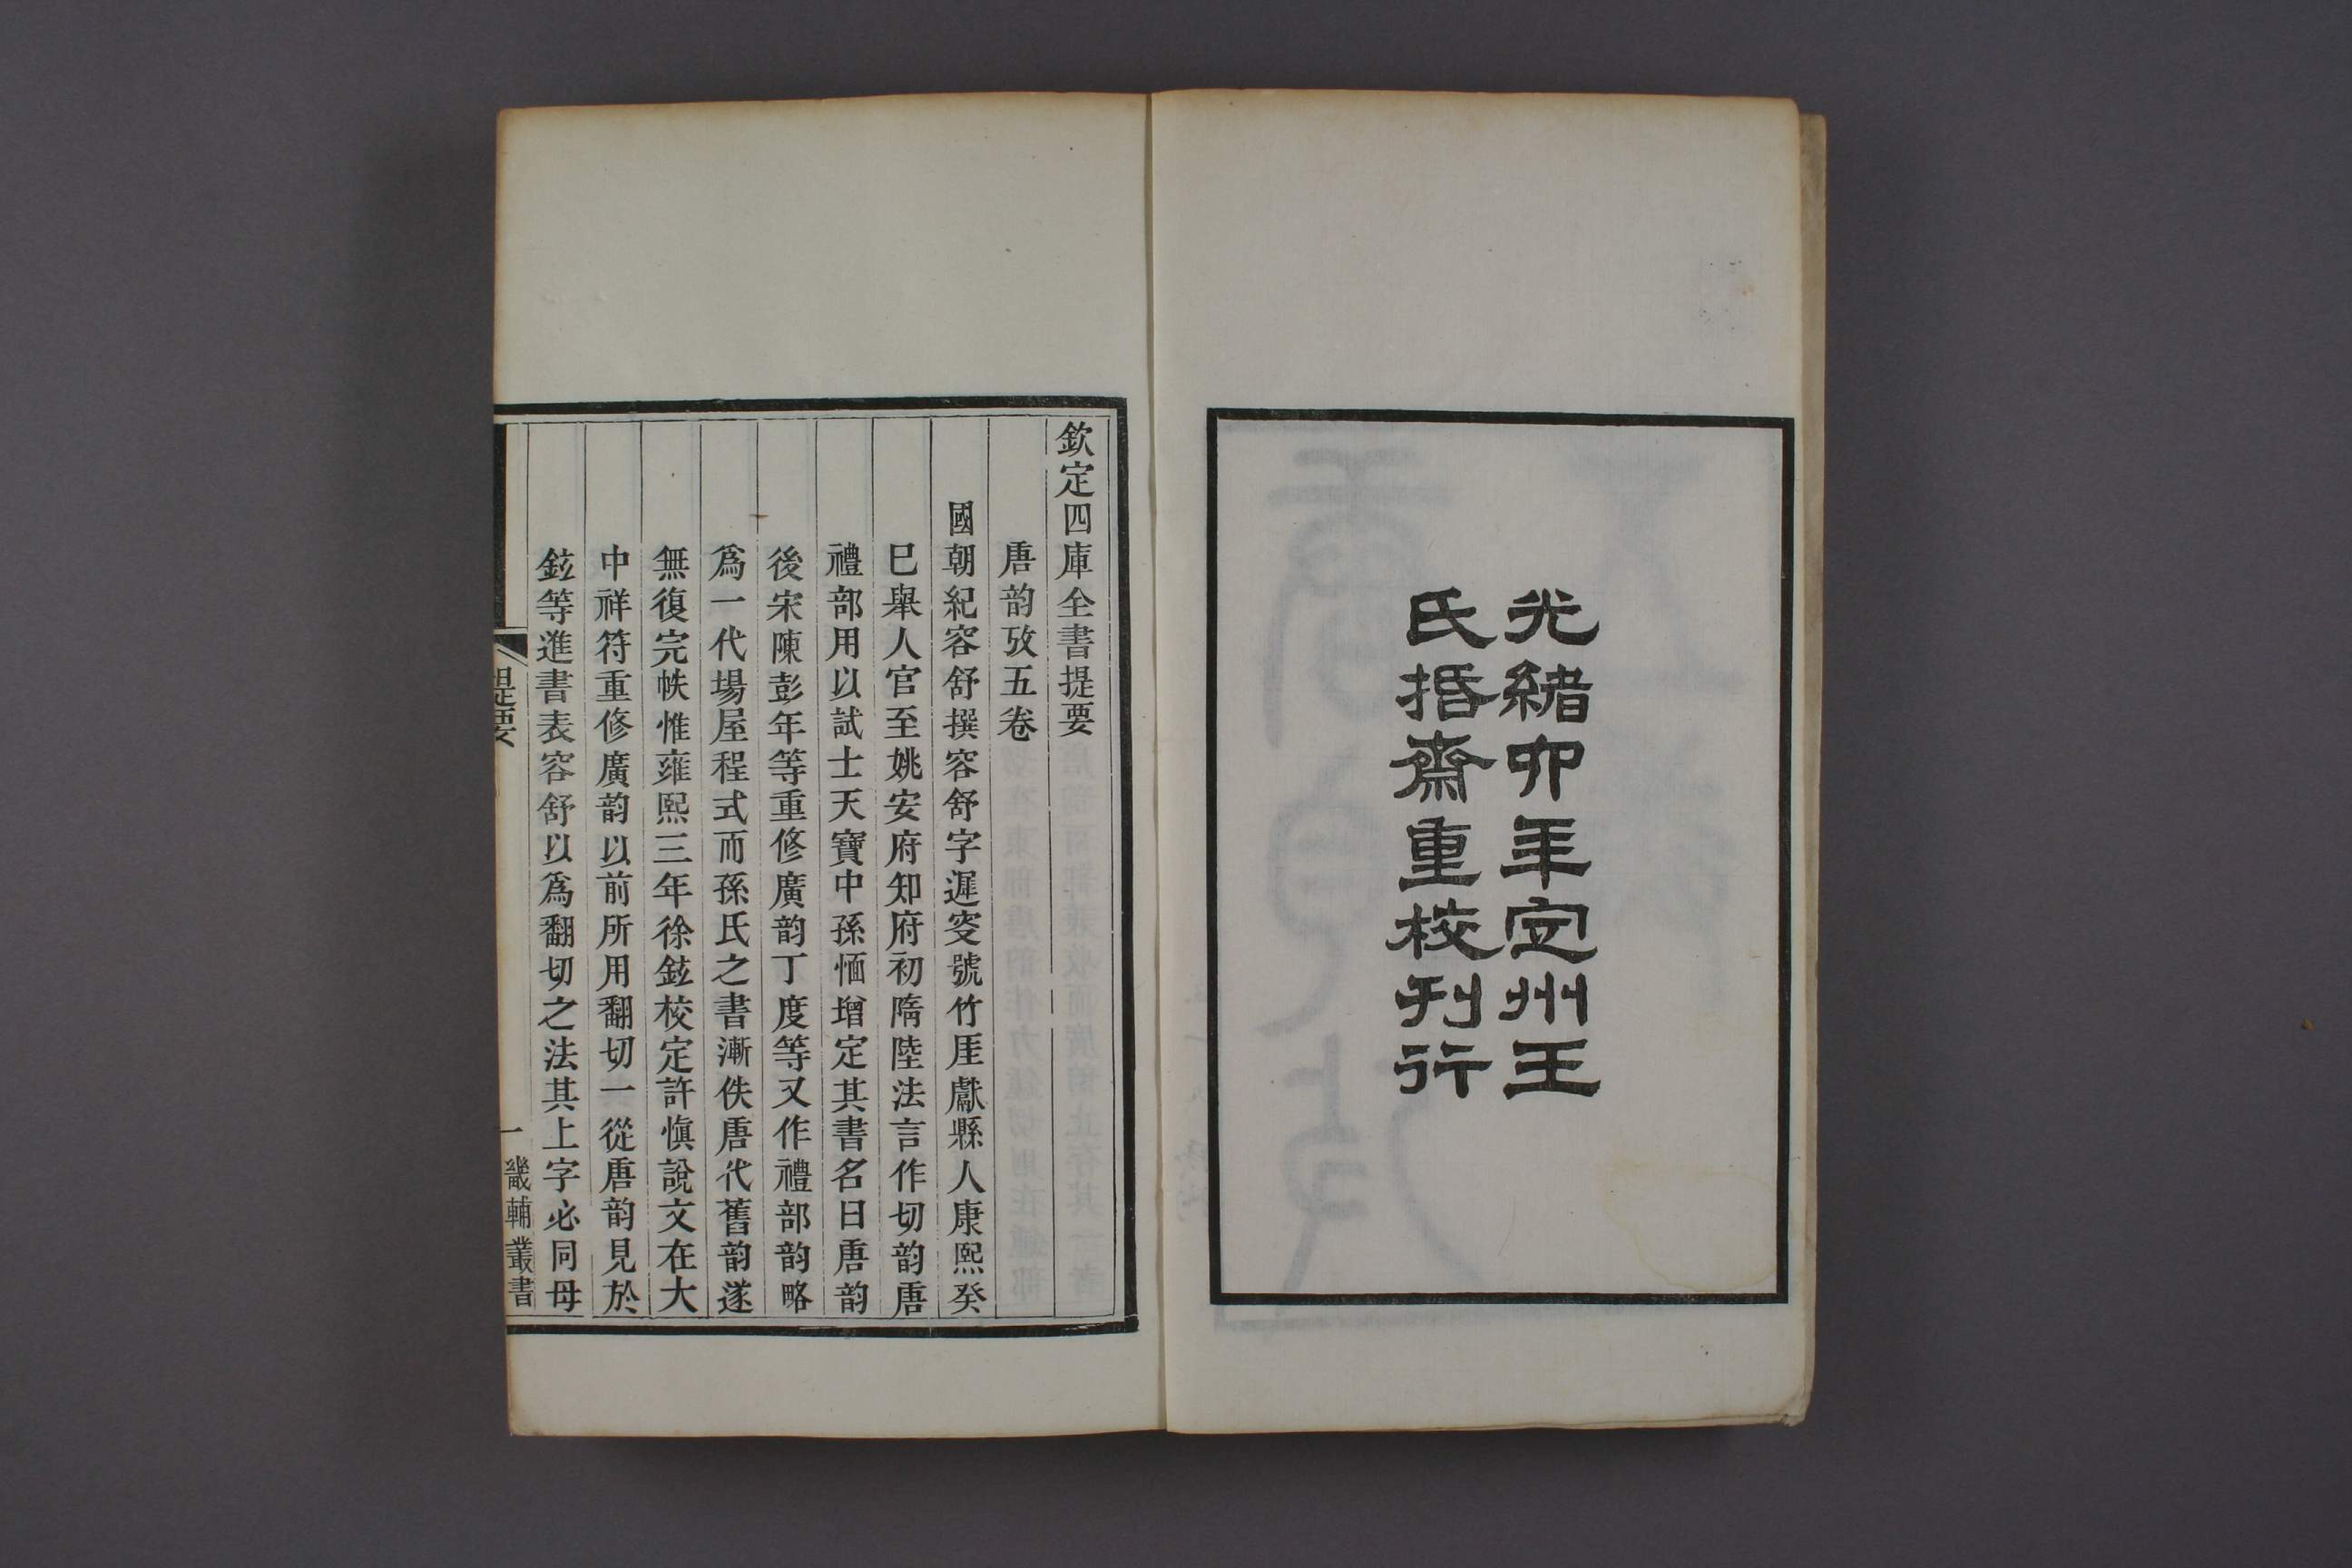 光緒卯年定州王
氏挋齋重校刊行
欽定四庫全書提要
唐韵攷五卷
國朝紀容舒撰容舒字遲叟號竹厓獻縣人康熙癸
巳舉人官至姚安府知府初隋陸法言作切韵唐
禮部用以試士天寶中孫愐增定其書名曰唐韵
後宋陳彭年等重修廣韵丁度等又作禮部韵略
爲一代場屋程式而孫氏之書漸佚唐代舊韵遂
無復完帙惟雍熙三年徐鉉校定許愼說文在大
中祥符重修廣韵以前所用翻切一從唐韵見於
鉉等進書表容舒以爲翻切之法其上字必同母
提要
一
畿輔叢書